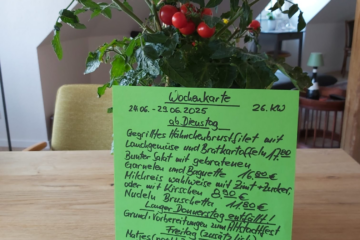 Wochenkarte
24.06. - 29.06.2025 26. KW
ab Dienstag
Gegrilltes Hähnchenbrustfilet mit
Lauchgemüse und Bratkartoffeln 17,80
Bunter Salat mit gebratenen
Garnelen und Baguette 16,80€
Milchreis wahlweise mit Zimt + Zucker,
oder mit Kirschen 8,90€
Nudeln Bruschetta 11,80€
Langer Donnerstag entfällt!
Grund: Vorbereitungen zum Altstadtfest
Freitag (zusätzlich)